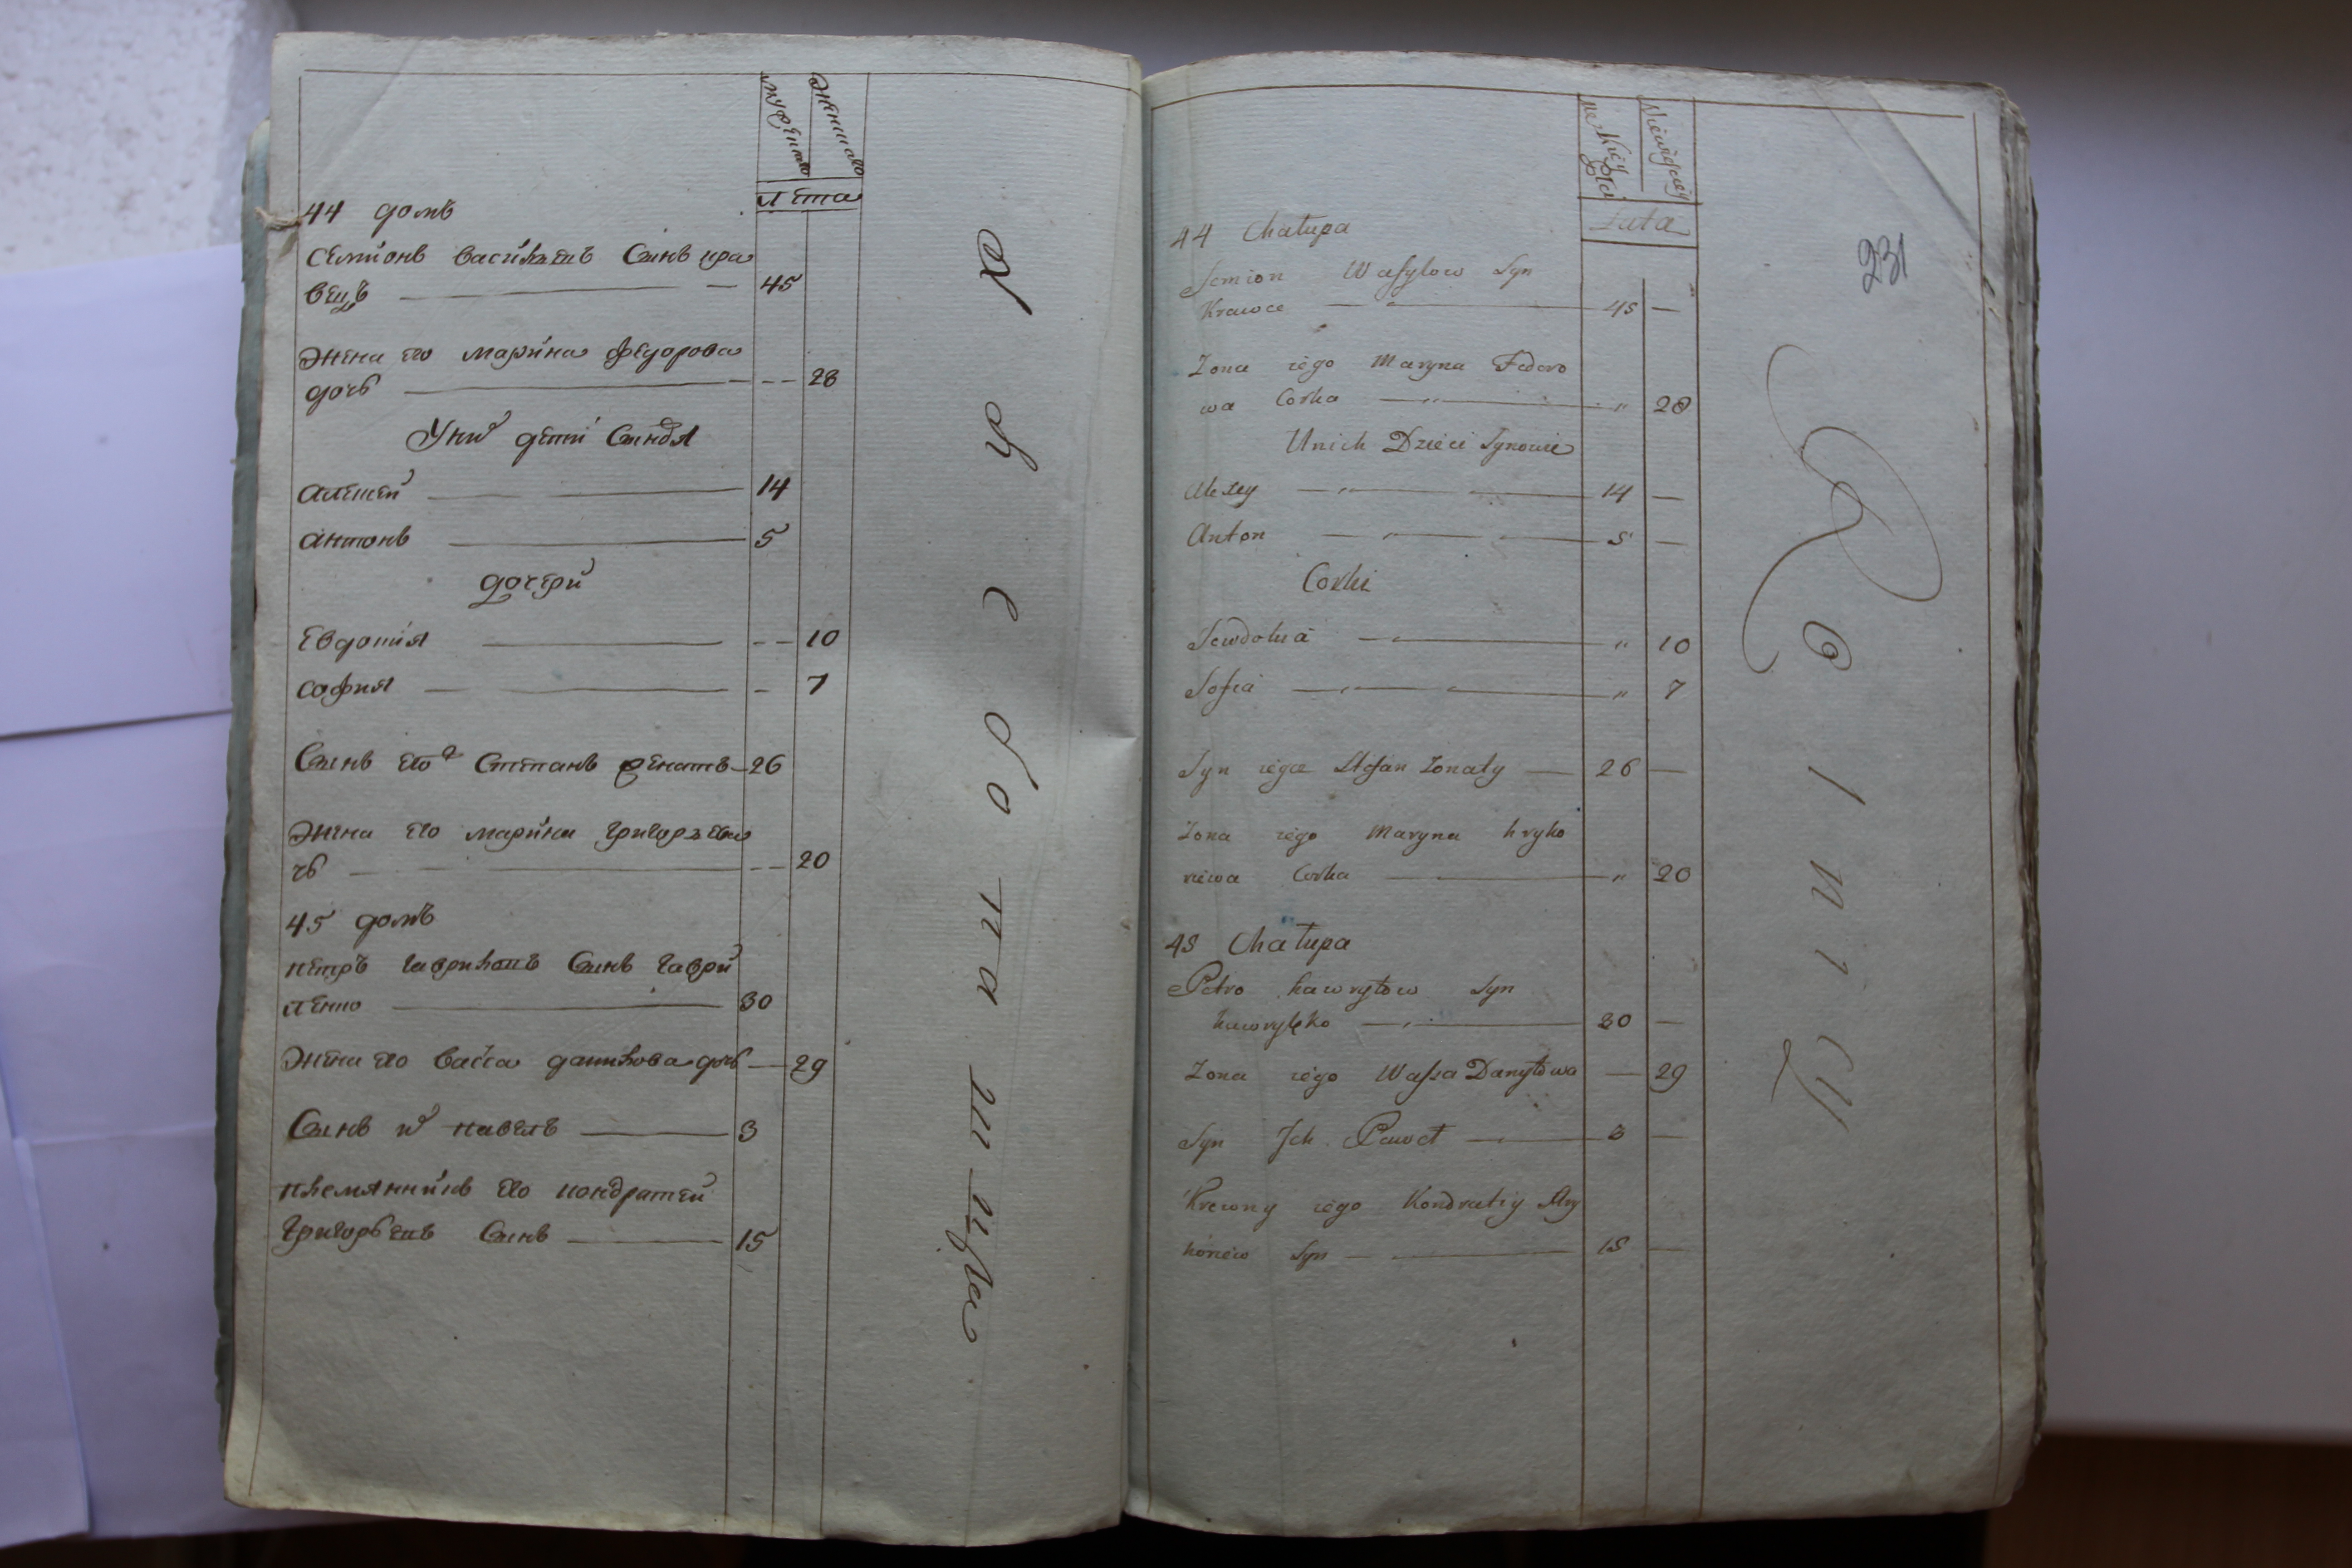 мужеска
женска
лета
44 домъ
Семионъ васильевъ Синъ кра
вецъ — 45
Жена его марина федорова
дочь — 28
У них дети Синовя
алексей — 14
антонъ — 5
дочери
Евдокия — 10
софия — 7
Синъ его Степанъ женатъ — 26
Жена его марина григорьева
чь — 20
45 домъ
петръ гавриловъ Синъ гаври
ленко — 30
Жена его васса данилова дочь — 29
Синъ их павелъ — 3
племянникъ его кондратей
григорьевъ Синъ — 15
231
Męskiey
Płci
Niewiesciey
Lata
44 Chałupa
Semion Wasylow Syn
Krawce — 45 —
Zona iego Maryna Fedoro
wa Corka — " 28
Unich Dzieci Synowie
Alexey — 14 —
Anton — 5 —
Corki
Jewdokia — " 10
Sofia — " 7
Syn iego Stefan Zonaty — 26 —
Zona iego Maryna hryho
riewa Corka — " 20
45 Chałupa
Petro hawryłow Syn
hawrylęko — 30 —
Zona iego Wassa Danyłowa — 29
Syn Ich Paweł — 3 —
Krewny iego Kondratiy
Syn — 15 —